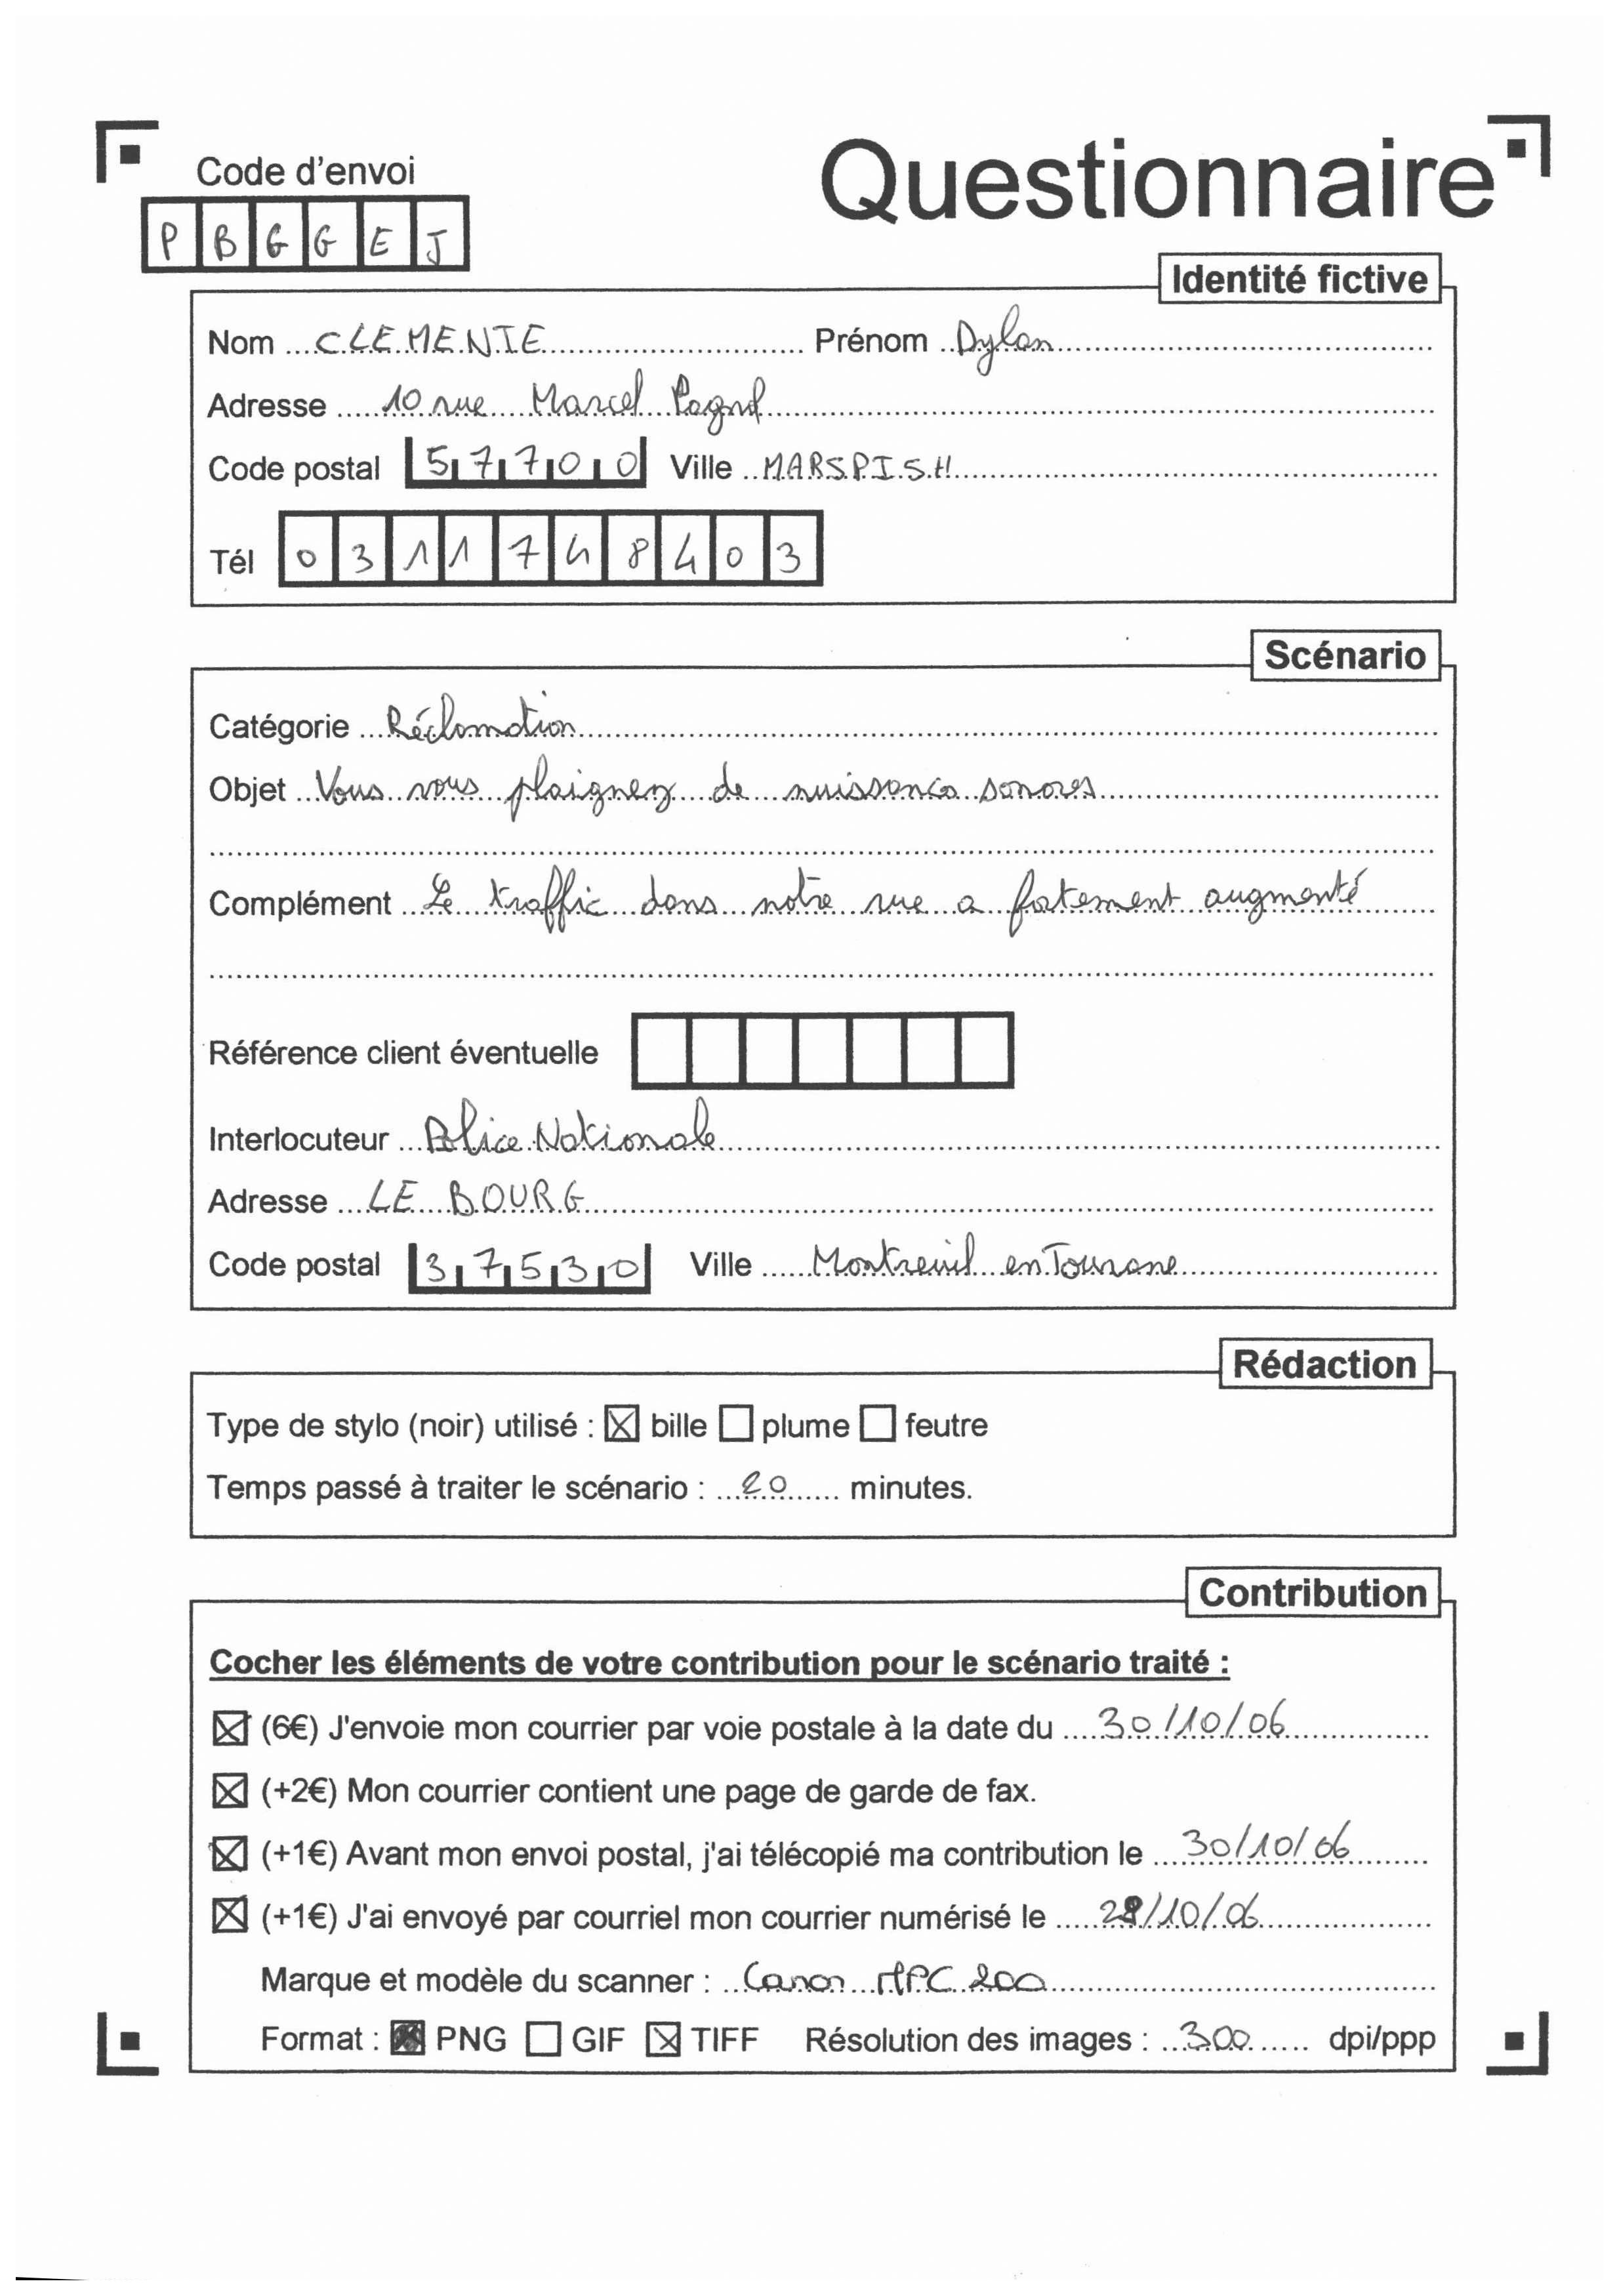 Code d'envoi
Questionnaire
P B G G E J
Identité fictive
Nom CLEMENTE Prénom Dylan
Adresse 10 rue Marcel Pagnol
Code postal 57700 Ville MARSPISH
Tél 0311748403
Scénario
Catégorie Réclamation
Objet Vous vous plaignez de nuisances sonores
Complément Le traffic dans notre rue a fortement augmenté
Référence client éventuelle
Interlocuteur Police Nationale
Adresse LE BOURG
Code postal 37530 Ville Montreuil en Touraine
Rédaction
Type de stylo (noir) utilisé : ☒ bille ☐ plume ☐ feutre
Temps passé à traiter le scénario : 20 minutes.
Contribution
Cocher les éléments de votre contribution pour le scénario traité :
☒ (6€) J'envoie mon courrier par voie postale à la date du 30/10/06
☒ (+2€) Mon courrier contient une page de garde de fax.
☒ (+1€) Avant mon envoi postal, j'ai télécopié ma contribution le 30/10/06
☒ (+1€) J'ai envoyé par courriel mon courrier numérisé le /10/06
Marque et modèle du scanner : Canon MPC 200
Format : PNG ☐ GIF ☒ TIFF Résolution des images : 300 dpi/ppp